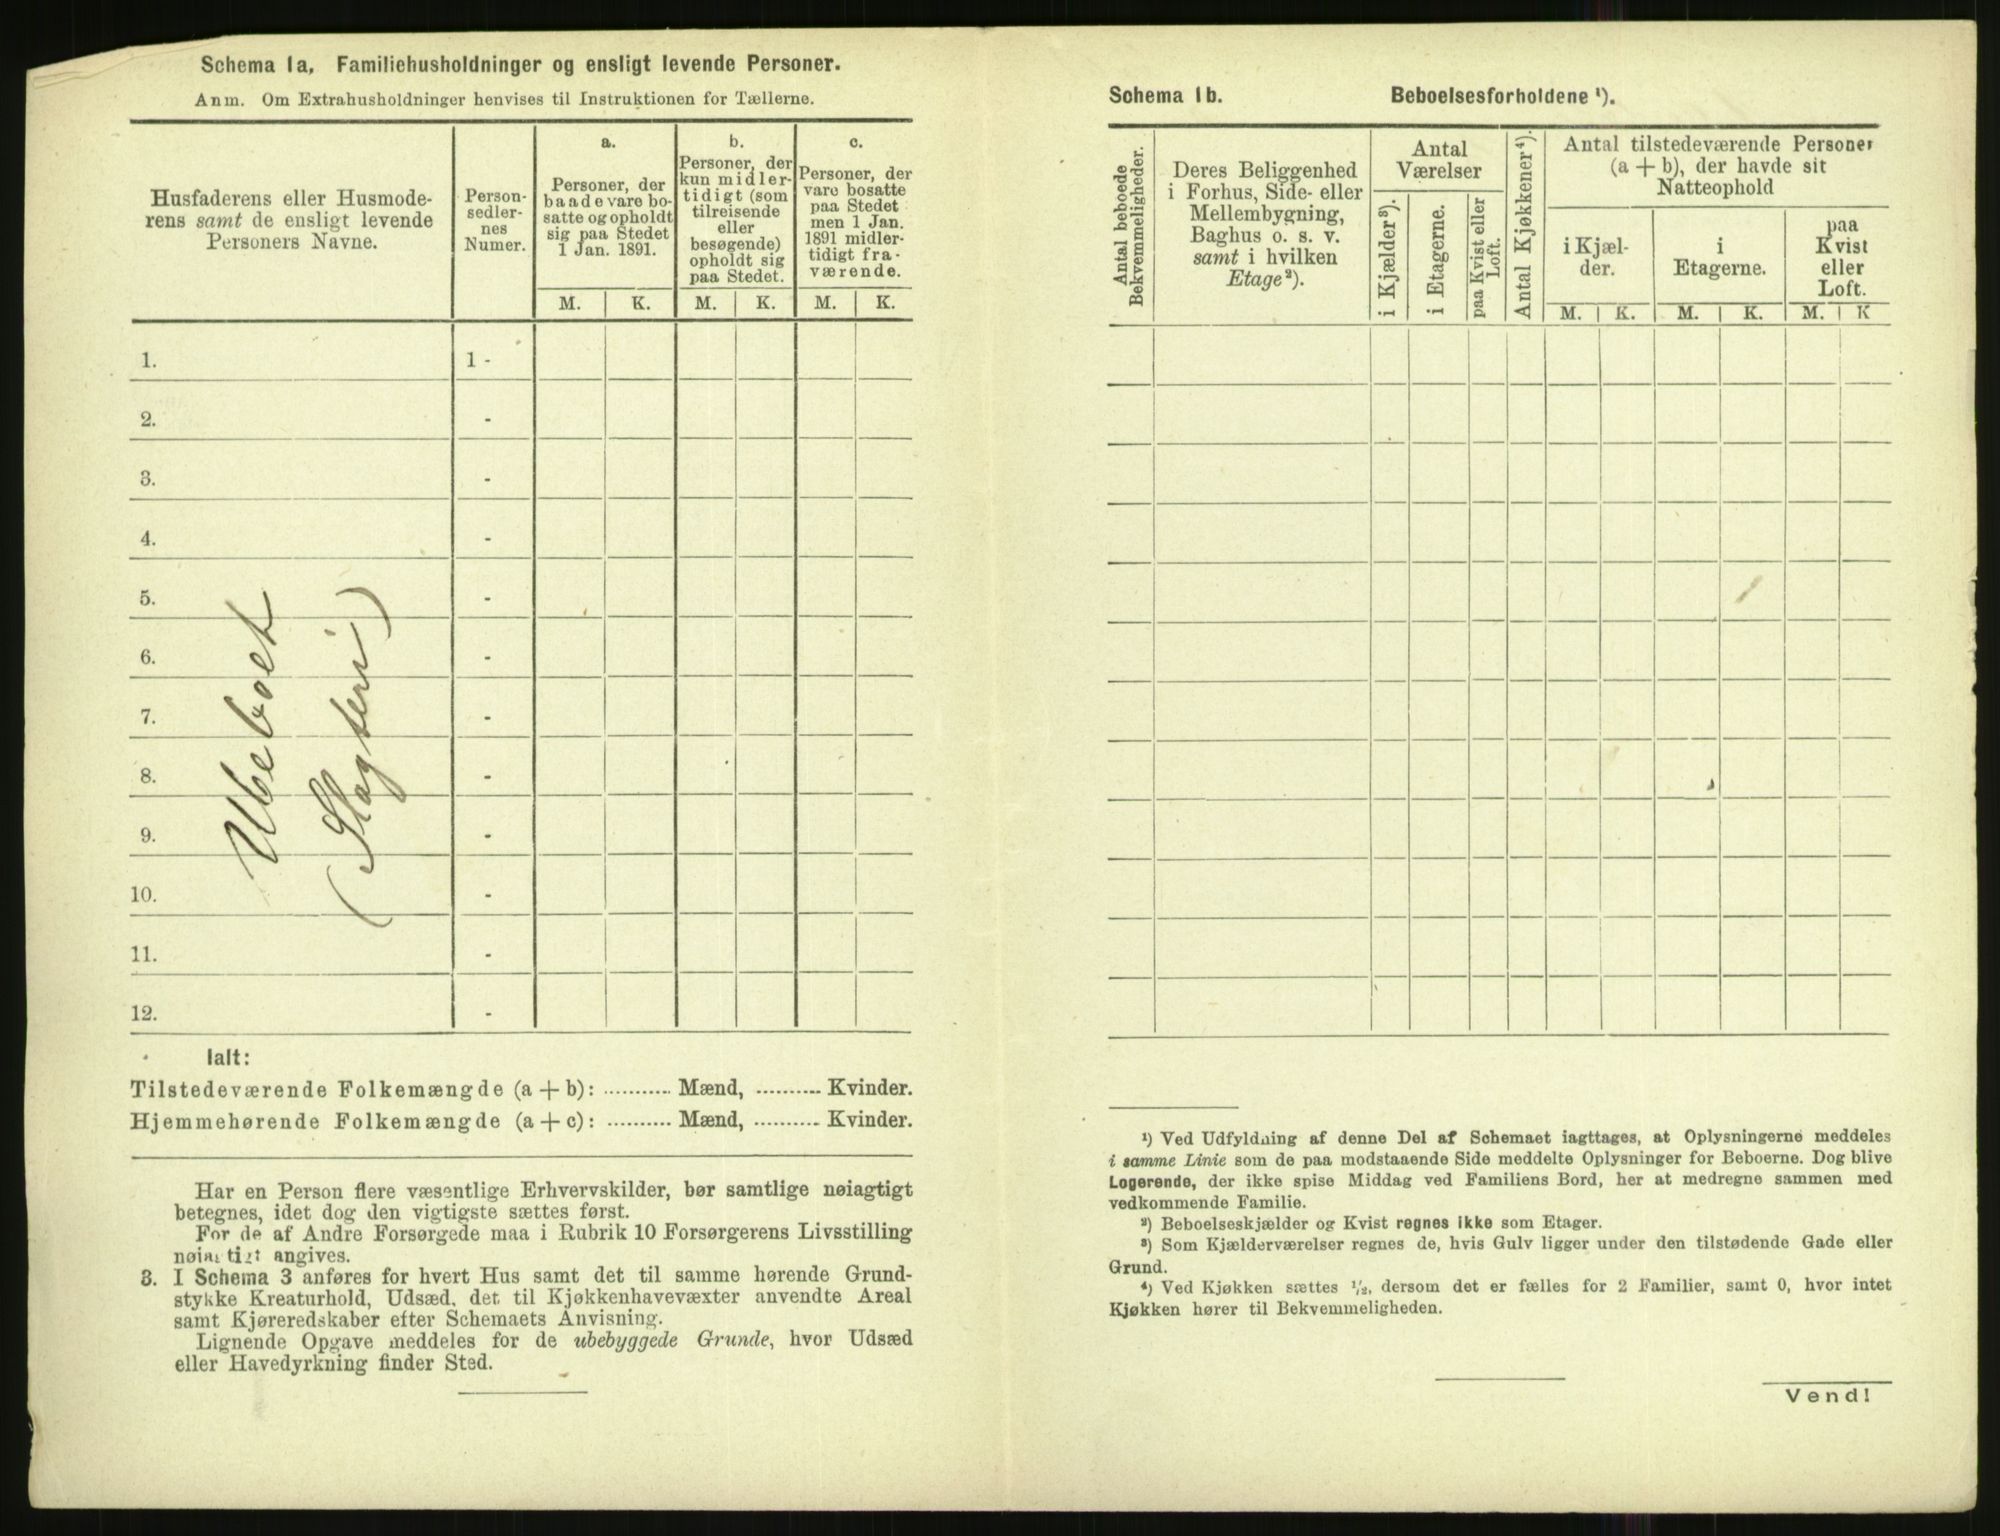 Schema 1a. Familiehusholdninger og ensligt levende Personer.
Anm. Om Extrahusholdninger henvises til Instruktionen for Tællerne.
Husfaderens eller Husmode-
rens samt de ensligt levende
Personers Navne.
Person-
sedler-
nes
Numer.
a.
Personer, der
baade vare bo-
satte og opholdt
sig paa Stedet
1 Jan. 1891.
b.
Personer, der
kun midler-
tidigt (som
tilreisende
eller
besøgende)
opholdt sig
paa Stedet.
c.
Personer, der
vare bosatte
paa Stedet
men 1 Jan.
1891 midler-
tidigt fra-
værende.
M. K. M. K. M. K.
1. 1 -
2. -
3. -
4. -
5. -
6. -
7. -
8. -
9. -
10. -
11. -
12. -
Ubeboet
(Slagteri)
Ialt:
Tilstedeværende Folkemængde (a + b): ........... Mænd, ........... Kvinder.
Hjemmehørende Folkemængde (a + c): ........... Mænd, ........... Kvinder.
Har en Person flere væsentlige Erhvervskilder, bør samtlige nøiagtigt
betegnes, idet dog den vigtigste sættes først.
For de af Andre Forsørgede maa i Rubrik 10 Forsørgerens Livsstilling
nøiagtigt angives.
3. I Schema 3 anføres for hvert Hus samt det til samme hørende Grund-
stykke Kreaturhold, Udsæd, det til Kjøkkenhavevæxter anvendte Areal
samt Kjøreredskaber efter Schemaets Anvisning.
Lignende Opgave meddeles for de ubebyggede Grunde, hvor Udsæd
eller Havedyrkning finder Sted.
Schema 1b. Beboelsesforholdene ¹).
Antal beboede
Bekvemmeligheder.
Deres Beliggenhed
i Forhus, Side- eller
Mellembygning,
Baghus o. s. v.
samt i hvilken
Etage²).
Antal
Værelser
i Kjælder³).
i Etagerne.
paa Kvist eller
Loft.
Antal Kjøkkener⁴).
Antal tilstedeværende Personer
(a + b), der havde sit
Natteophold
i Kjæl-
der.
i
Etagerne.
paa
Kvist
eller
Loft.
M. K. M. K. M. K
¹) Ved Udfyldning af denne Del af Schemaet iagttages, at Oplysningerne meddeles
i samme Linie som de paa modstaaende Side meddelte Oplysninger for Beboerne. Dog blive
Logerende, der ikke spise Middag ved Familiens Bord, her at medregne sammen med
vedkommende Familie.
²) Beboelseskjælder og Kvist regnes ikke som Etager.
³) Som Kjælderværelser regnes de, hvis Gulv ligger under den tilstødende Gade eller
Grund.
⁴) Ved Kjøkken sættes ¹/₂, dersom det er fælles for 2 Familier, samt 0, hvor intet
Kjøkken hører til Bekvemmeligheden.
Vend!